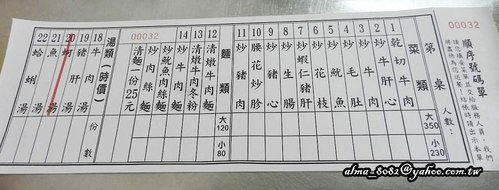 00032
順序號碼單
第 桌 人數：
菜類 大350 小230
1 乾切牛肉
2 牛肝心
3 炒牛肚
4 炒魷魚
5 炒花枝
6 炒蝦仁
7 炒豬肝
8 炒生腸
9 炒豬心
10 腰花炒胗
11 炒豬肉
麵類 大120 小80
12 清燉牛肉麵
13 清燉牛肉冬粉
14 炒牛肉麵
15 炒魷魚肉絲麵
16 炒肉絲麵
17 清麵一份25元
00032
湯類（時價） 份數
18 牛肉湯
19 豬肝湯
20 蚵湯
21 魚湯
22 蛤蜊湯
alma_8082@yahoo.com.tw